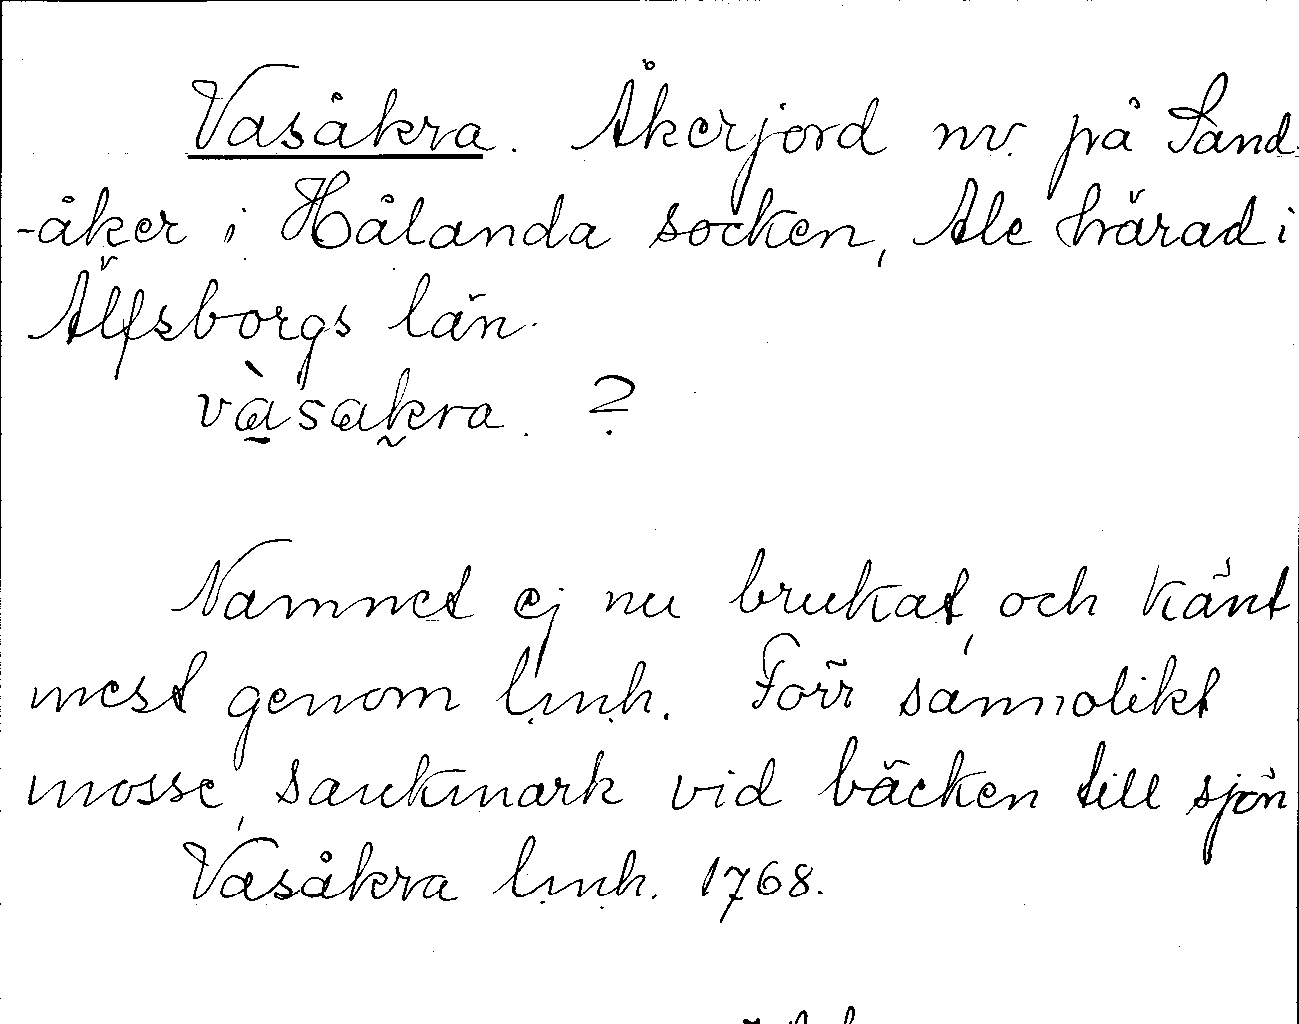 Vasåkra. Åkerjord nv. på Sand-
-åker i Hålanda socken, Ale härad i
Älfsborgs län.
vàsakra. ?
Namnet ej nu brukat, och känt
mest genom lmh. Förr sannolikt
mosse, sankmark vid bäcken till sjön
Vasåkra lmh. 1768.